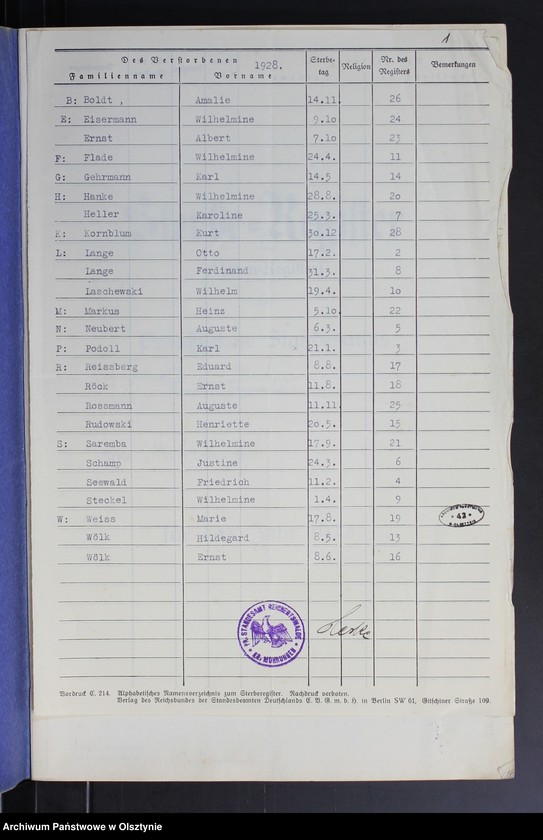 1
Des Verstorbenen 1928.
Familienname Vorname Sterbe-tag Religion Nr. des Registers Bemerkungen
B: Boldt , Amalie 14.11. 26
E: Eisermann Wilhelmine 9.10 24
Ernst Albert 7.10 23
F: Flade Wilhelmine 24.4. 11
G: Gehrmann Karl 14.5 14
H: Hanke Wilhelmine 28.8. 20
Heller Karoline 25.3. 7
K: Kornblum Kurt 30.12 28
L: Lange Otto 17.2. 2
Lange Ferdinand 31.3. 8
Laschewski Wilhelm 19.4. 10
M: Markus Heinz 5.10 22
N: Neubert Auguste 6.3. 5
P: Podoll Karl 21.1. 3
R: Reissberg Eduard 8.8. 17
Röck Ernst 11.8. 18
Rossmann Auguste 11.11 25
Rudowski Henriette 20.5. 15
S: Saremba Wilhelmine 17.9. 21
Schamp Justine 24.3. 6
Seewald Friedrich 11.2. 4
Steckel Wilhelmine 1.4. 9
W: Weiss Marie 17.8. 19
42
Wölk Hildegard 8.5. 13
Wölk Ernst 8.6. 16
PR. STANDESAMT REICHENTHALWALDE
KR. MOHRUNGEN
Vordruck C. 214. Alphabetisches Namensverzeichnis zum Sterberegister. Nachdruck verboten.
Verlag des Reichsbundes der Standesbeamten Deutschlands E. V. G. m. b. H. in Berlin SW 61, Gitschiner Straße 109.
Archiwum Państwowe w Olsztynie